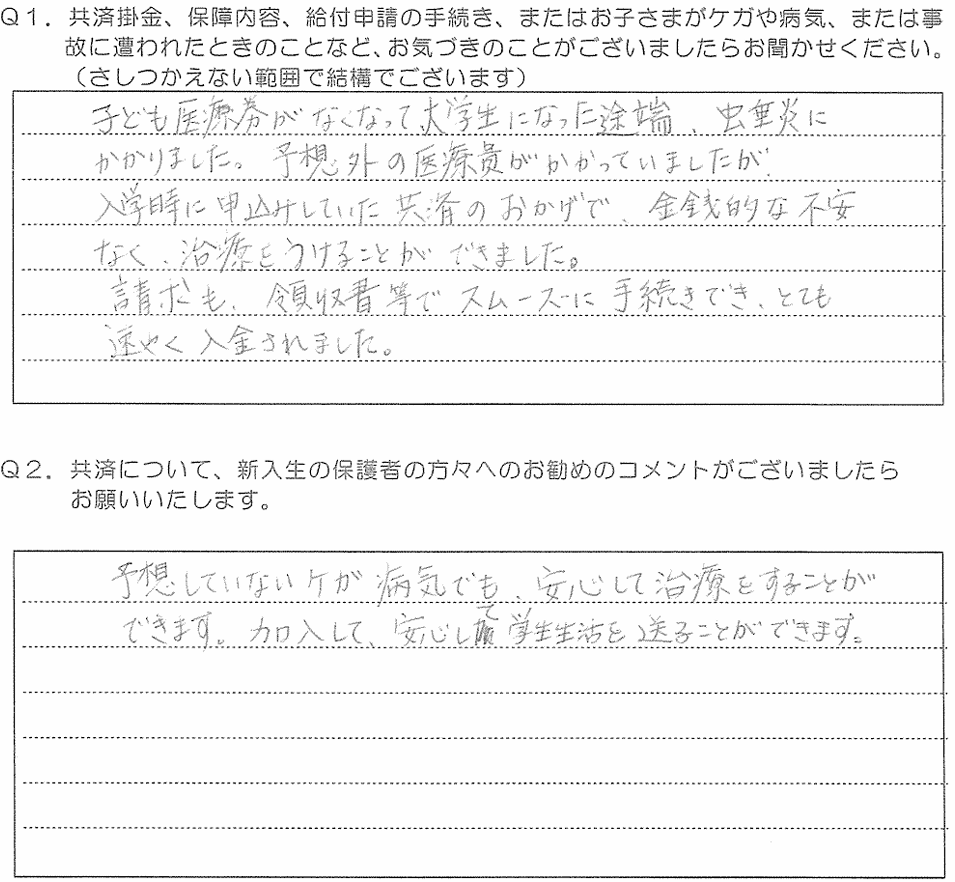 Q1．共済掛金、保障内容、給付申請の手続き、またはお子さまがケガや病気、または事
故に遭われたときのことなど、お気づきのことがございましたらお聞かせください。
（さしつかえない範囲で結構でございます）
子ども医療券がなくなって大学生になった途端、虫垂炎に
かかりました。予想外の医療費がかかっていましたが、
入学時に申込みしていた共済のおかげで、金銭的な不安
なく、治療をうけることができました。
請求も、領収書等でスムーズに手続きでき、とても
速やく入金されました。
Q2．共済について、新入生の保護者の方々へのお勧めのコメントがございましたら
お願いいたします。
予想していないケガ病気でも、安心して治療をすることが
できます。加入して、安心して学生生活を送ることができます。